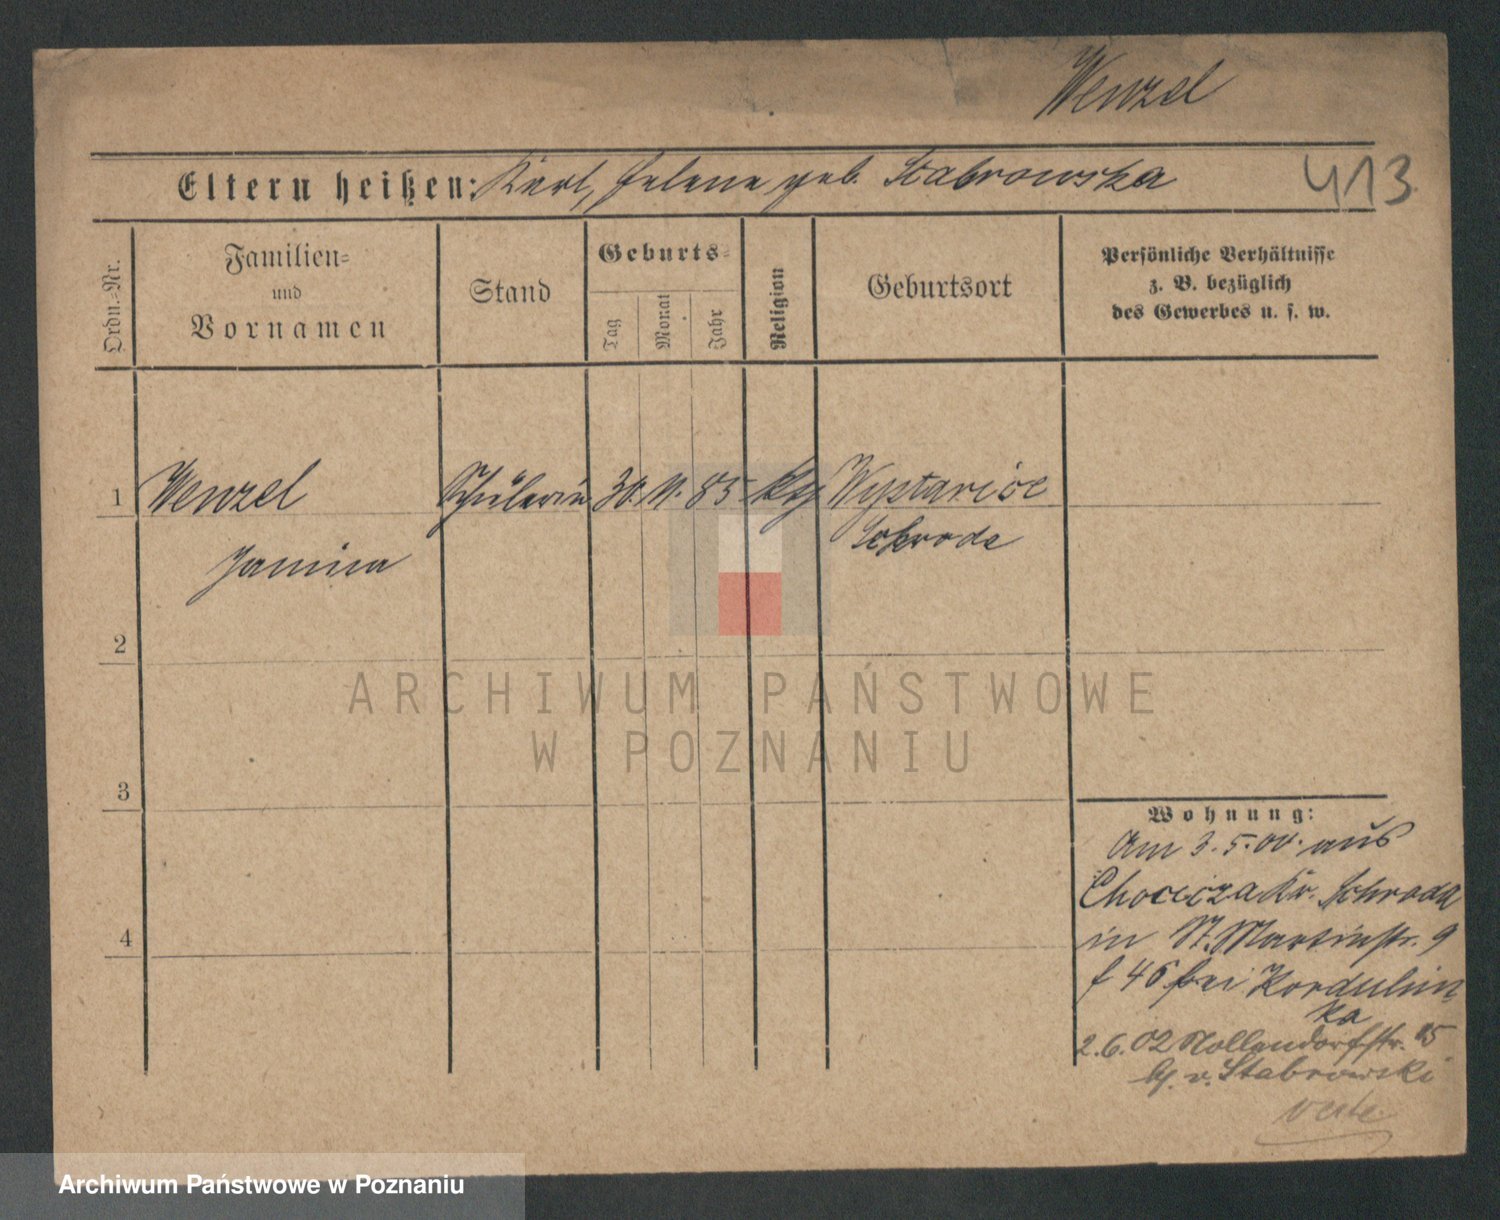 Wenzel
Eltern heißen: Karl, Helene geb. Stabrowska
413
Ordn.-Nr.
Familien-
und
Vornamen
Stand
Geburts-
Tag
Monat
Jahr
Religion
Geburtsort
Persönliche Verhältnisse
z. B. bezüglich
des Gewerbes u. s. w.
1
Wenzel
Schülerin
30. 11. 85
kth
Schroda
Janina
2
ARCHIWUM PAŃSTWOWE
W POZNANIU
3
4
Wohnung:
Am 3.5.00. aus
Chocicza Kr. Schroda
in St. Martinstr. 9
f 46 bei Kordulin
ka
2.6.02 Nollendorfstr. 15
b/. v. Stabrowski
Archiwum Państwowe w Poznaniu